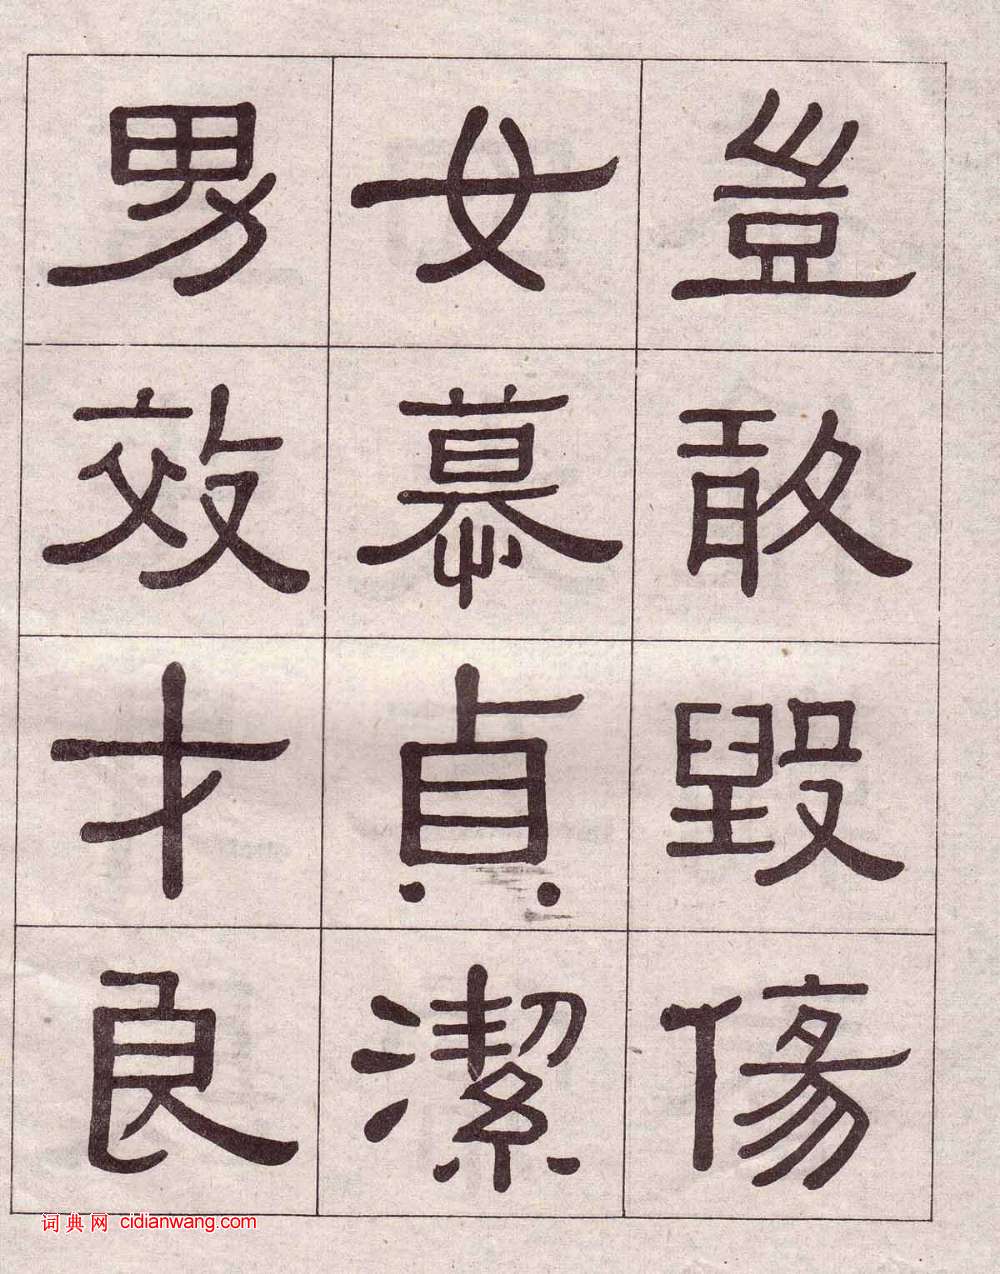 豈敢毀傷
女慕貞潔
男效才良
词典网 cidianwang.com